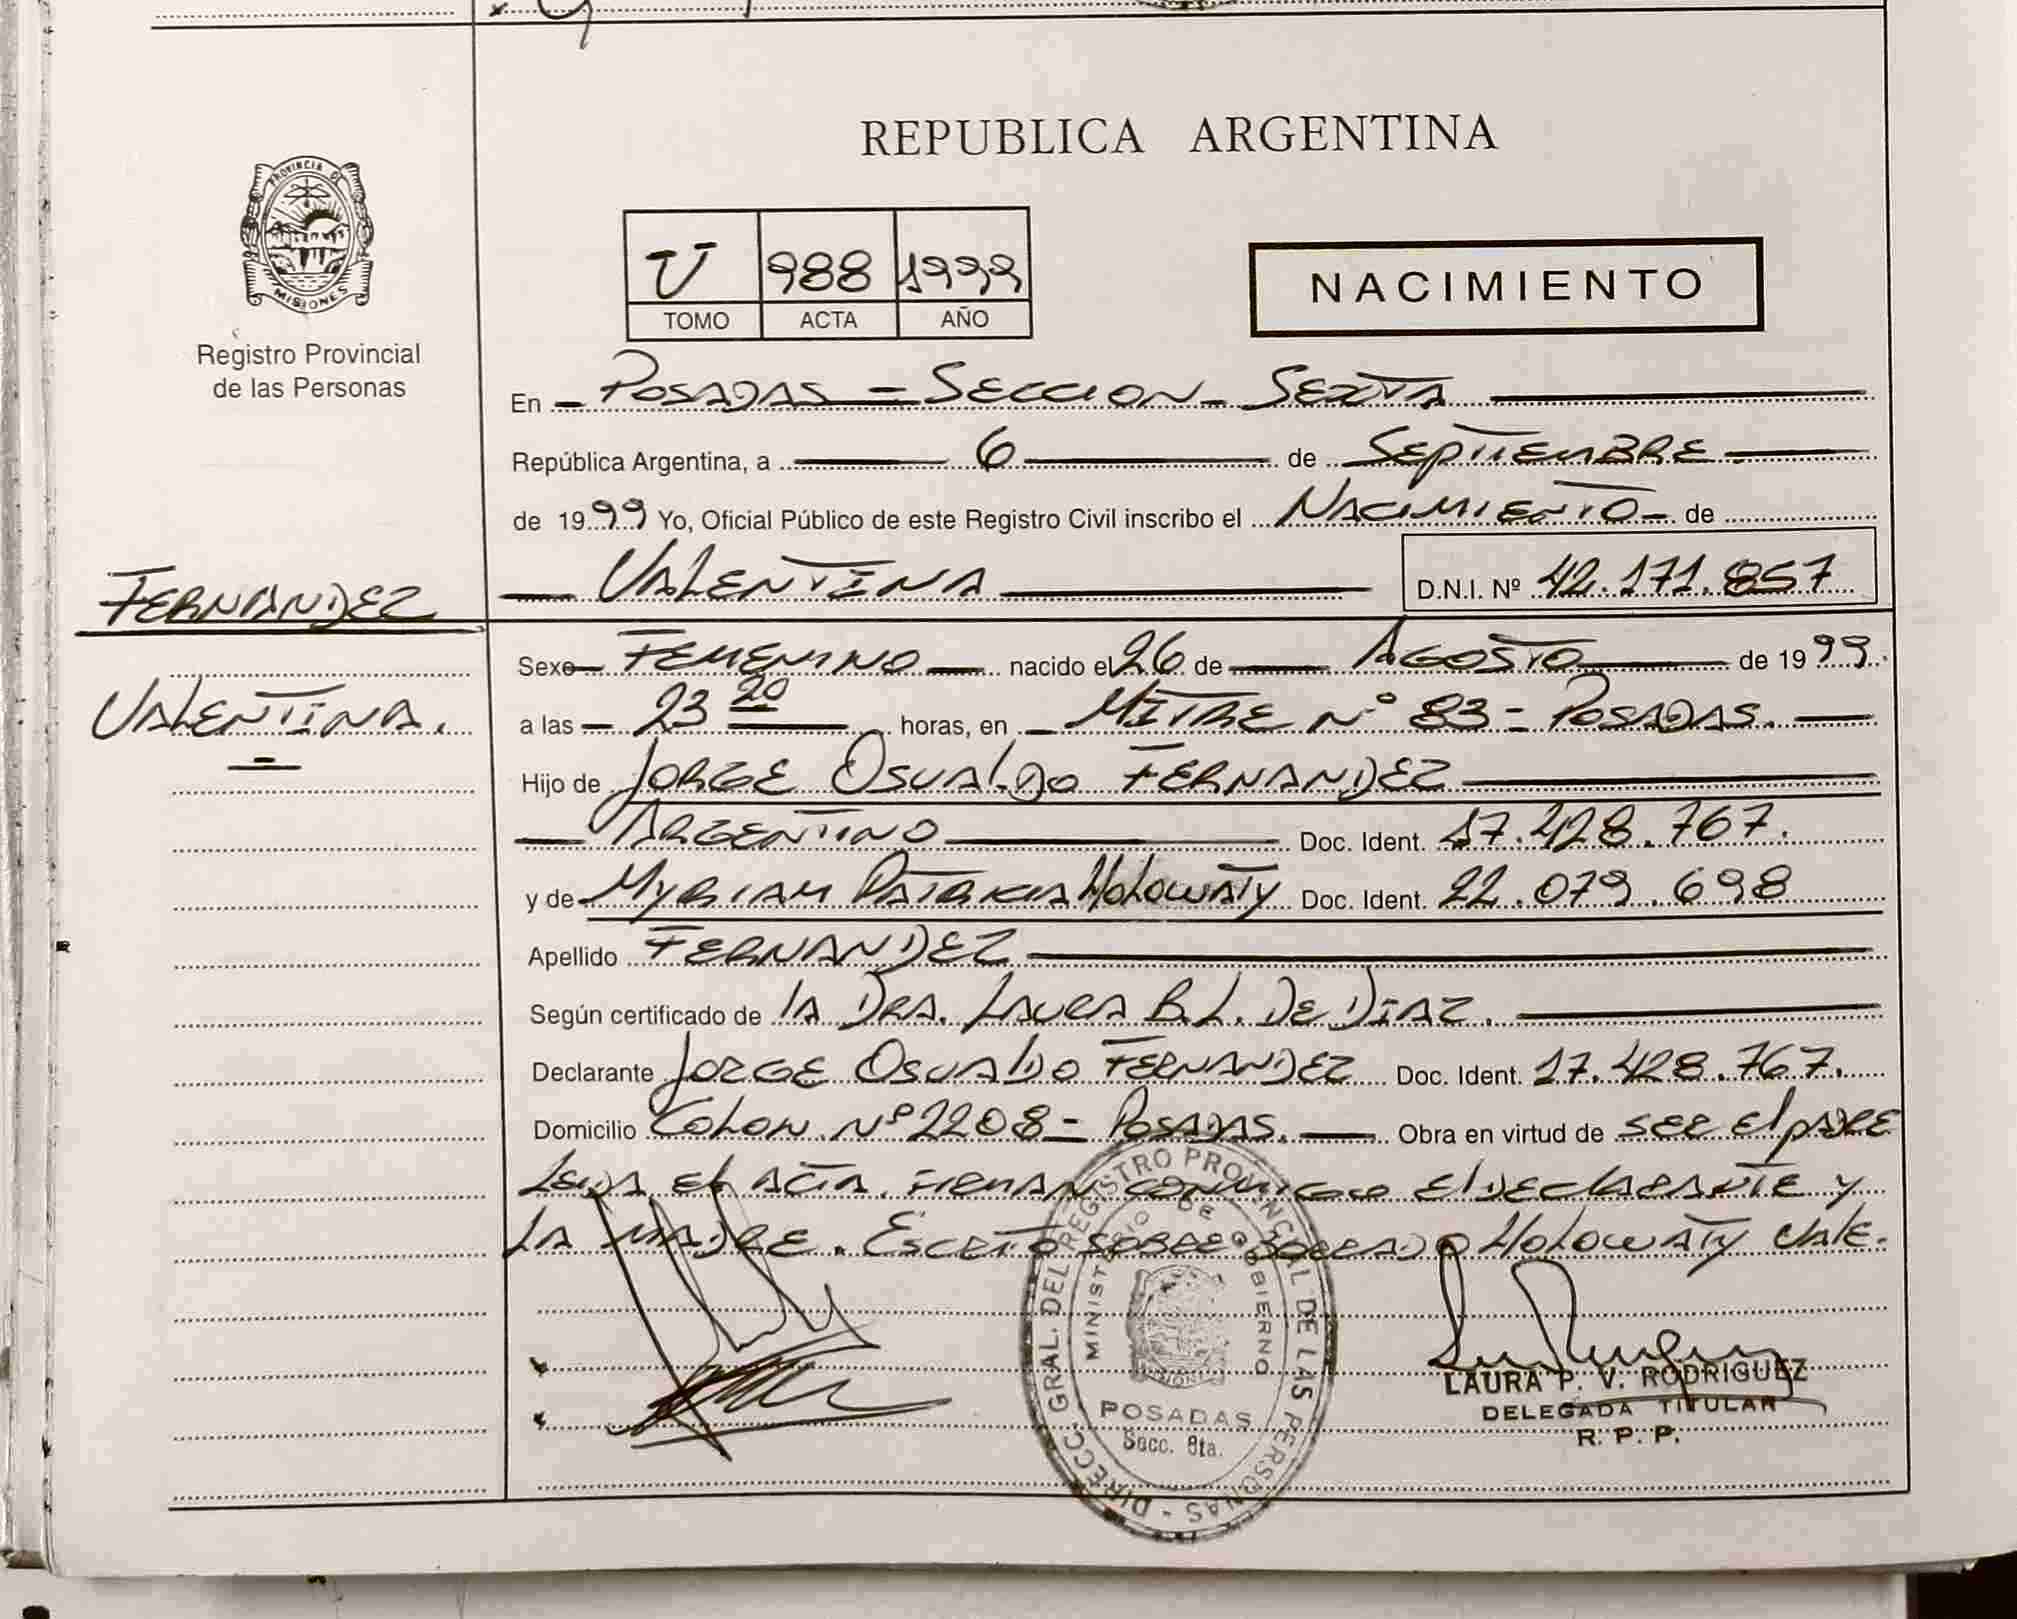 REPUBLICA ARGENTINA
PROVINCIA DE
MISIONES
Registro Provincial
de las Personas
U 988 1999
TOMO ACTA AÑO
NACIMIENTO
En POSADAS = SECCION - SEXTA
República Argentina, a 6 de SEPTIEMBRE
de 1999 Yo, Oficial Público de este Registro Civil inscribo el NACIMIENTO de
VALENTINA D.N.I. Nº 42.171.857
FERNANDEZ
VALENTINA.
Sexo FEMENINO nacido el 26 de AGOSTO de 1999.
a las 23 20 horas, en MITRE Nº 83 = POSADAS.
Hijo de JORGE OSVALDO FERNANDEZ
ARGENTINO Doc. Ident. 17.428.767.
y de MYRIAM PATRICIA HOLOWATY Doc. Ident. 22.079.698
Apellido FERNANDEZ
Según certificado de la DRA. LAURA B.L. DE DIAZ.
Declarante JORGE OSVALDO FERNANDEZ Doc. Ident. 17.428.767.
Domicilio COLON Nº 2208 = POSADAS. Obra en virtud de SER El pADRE
Leida El ACTA. FIRMAN CONMIGO El DECLARANTE y
LA MADRE. ESCRITO SOBRE BORRADO HOLOWATY VALE.
DIRECC. GRAL. DEL REGISTRO PROVINCIAL DE LAS PERSONAS -
MINISTERIO DE GOBIERNO
POSADAS
Secc. 6ta.
LAURA P. V. RODRIGUEZ
DELEGADA TITULAR
R. P. P.